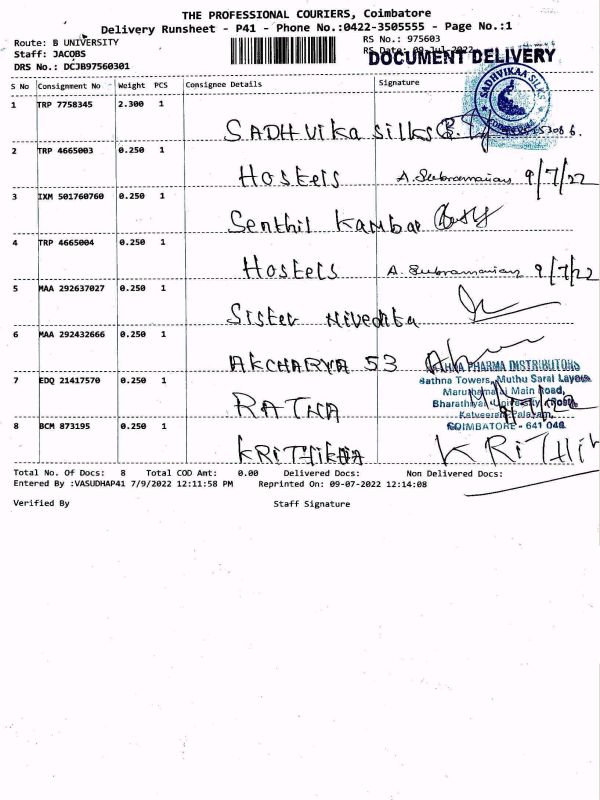 THE PROFESSIONAL COURIERS, Coimbatore
Delivery Runsheet - P41 - Phone No.:0422-3505555 - Page No.:1
Route: B UNIVERSITY
RS No.: 975603
Staff: JACOBS
RS Date: 09-Jul-2022
DOCUMENT DELIVERY
DRS No.: DCJB97560301
SADHVIKAA SILKS
S No Consignment No Weight PCS Consignee Details Signature
1 TRP 7758345 2.300 1
SADHVika silks
2 TRP 4665003 0.250 1
Hostels A. Subramanian 9/7/22
3 IXM 501760760 0.250 1
Senthil Kambar
4 TRP 4665004 0.250 1
Hostels A. Subramanian 9/7/22
5 MAA 292637027 0.250 1
Sister Nivedita
6 MAA 292432666 0.250 1
AKCHARYA 53
PHARMA DISTRIBUTORS
7 EDQ 21417570 0.250 1
Rathna Towers, Muthu Sarai Layout
Maruthamalai Main Road,
Bharathiyar University (Post)
RATNA
8 BCM 873195 0.250 1
COIMBATORE - 641 046
KRITHIKHA KRITHIK
Total No. Of Docs: 8 Total COD Amt: 0.00 Delivered Docs: Non Delivered Docs:
Entered By :VASUDHAP41 7/9/2022 12:11:58 PM Reprinted On: 09-07-2022 12:14:08
Verified By Staff Signature